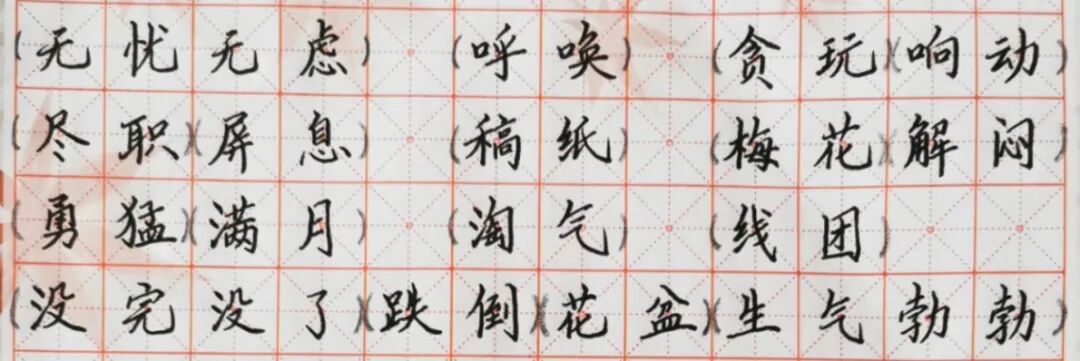 (无忧无虑) (呼唤) (贪玩)(响动)
(尽职)(屏息) (稿纸) (梅花)(解闷)
(勇猛)(满月) (淘气) (线团)
(没完没了)(跌倒)(花盆)(生气勃勃)